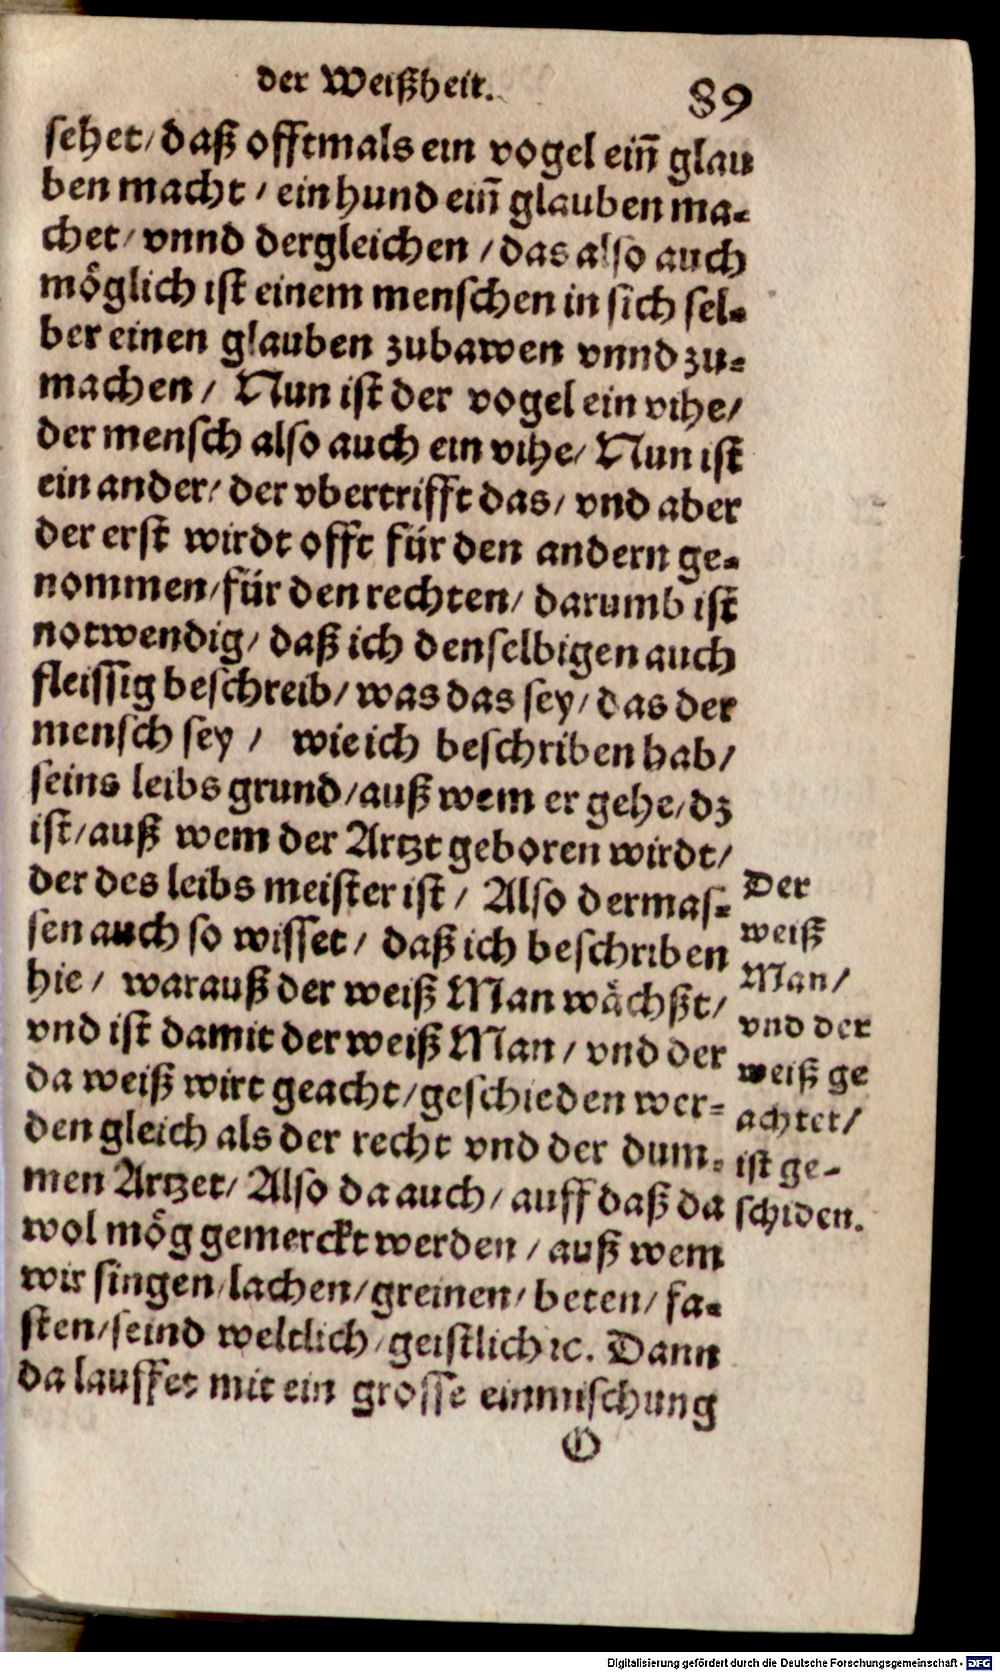 der Weißheit. 89
sehet/ daß offtmals ein vogel einñ glau
ben macht / ein hund einñ glauben ma-
chet/ vnnd dergleichen / das also auch
möglich ist einem menschen in sich sel-
ber einen glauben zubawen vnnd zu-
machen / Nun ist der vogel ein vihe/
der mensch also auch ein vihe/ Nun ist
ein ander/ der vbertrifft das/ vnd aber
der erst wirdt offt für den andern ge-
nommen/ für den rechten/ darumb ist
notwendig/ daß ich denselbigen auch
fleissig beschreib/ was das sey/ das der
mensch sey / wie ich beschriben hab/
seins leibs grund/ auß wem er gehe/ dz
ist/ auß wem der Artzt geboren wirdt/
der des leibs meister ist / Also dermas-
sen auch so wisset / daß ich beschriben
hie / warauß der weiß Man wächßt/
vnd ist damit der weiß Man / vnd der
da weiß wirt geacht/ geschieden wer-
den gleich als der recht vnd der dum-
men Artzet/ Also da auch/ auff daß da
wol mög gemerckt werden / auß wem
wir singen/ lachen/ greinen/ beten/ fa-
sten/ seind weltlich/ geistlich ꝛc. Dann
da lauffet mit ein grosse einmischung
O
Der
weiß
Man/
vnd der
weiß ge
achtet/
ist ge-
schiden.
Digitalisierung gefördert durch die Deutsche Forschungsgemeinschaft - DFG